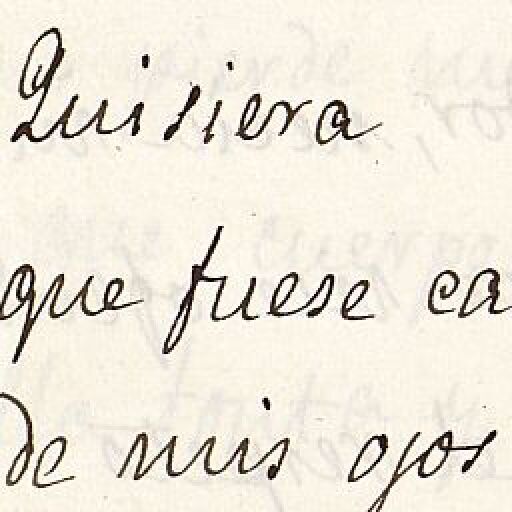 Quisiera
que fuese ca
de mis ojos